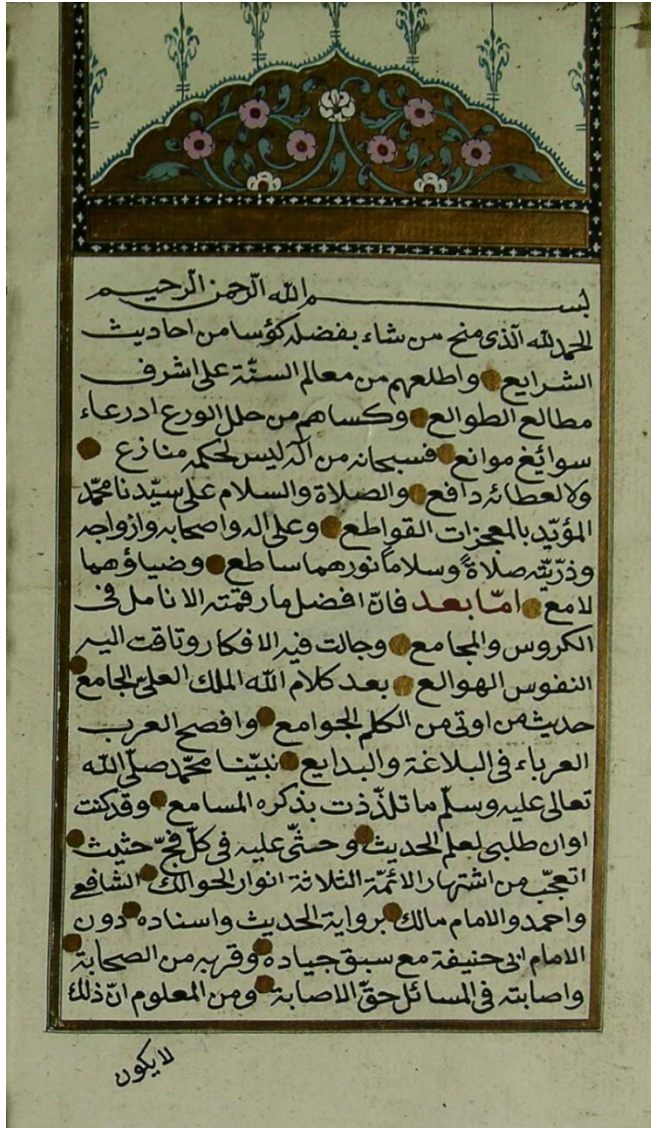 بسم الله الرحمن الرحيم
الحمد لله الذى منح من شاء بفضله كؤسا من احاديث
الشرايع واطلعهم من معالم السنّة على اشرف
مطالع الطوالع وكساهم من حلل الورع ادرعاء
سوائغ موانع فسبحانه من اله ليس لحكمه منازع
ولا لعطائه دافع والصلاة والسلام على سيّدنا محمّد
المؤيّد بالمعجزات القواطع وعلى اله واصحابه وازواجه
وذرّيّته صلاةً وسلاماً نورهما ساطع وضياؤهما
لامع امّا بعد فانّ افضل ما رقمته الانامل فى
الكروس والمجامع وجالت فيه الافكار وتاقت اليه
النفوس الهوالع بعد كلام الله الملك العلىّ الجامع
حديث من اوتى من الكلم الجوامع وافصح العرب
العرباء فى البلاغة والبدايع نبيّنا محمّد صلّى الله
تعالى عليه وسلّم ما تلذّذت بذكره المسامع وقد كنت
اوان طلبى لعلم الحديث وحثّى عليه فى كلّ فجّ حثيث
اتعجّب من اشتهار الائمّة الثلاثة انوار الحوالك الشافعى
واحمد والامام مالك برواية الحديث واسناده دون
الامام ابى حنيفة مع سبق جياده وقربه من الصحابة
واصابته فى المسائل حقّ الاصابة ومن المعلوم انّ ذلك
لايكون